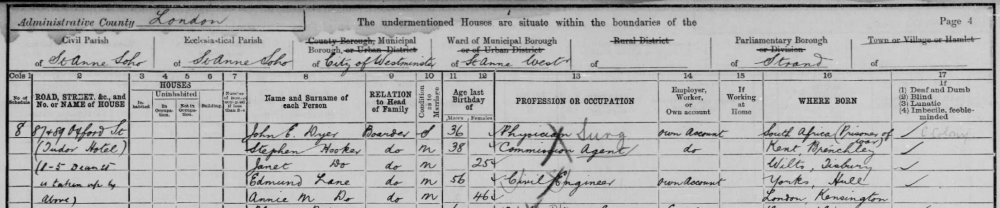 Administrative County London
The undermentioned Houses are situate within the boundaries of the
Page 4
Civil Parish
of St Anne Soho
Ecclesiastical Parish
of St Anne Soho
County Borough, Municipal
Borough, or Urban District
of City of Westminster
Ward of Municipal Borough
or of Urban District
of St Anne West
Rural District
of
Parliamentary Borough
or Division
of Strand
Town or Village or Hamlet
of
Cols 1 2 3 4 5 6 7 8 9 10 11 12 13 14 15 16 17
No. of Schedule
ROAD, STREET, &c., and No. or NAME of HOUSE
HOUSES
Inhabited
Uninhabited
In Occupation
Not in Occupation
Building
Name and Surname of each Person
RELATION to Head of Family
Condition as to Marriage
Age last Birthday of
Males Females
PROFESSION OR OCCUPATION
Employer, Worker, or Own account
If Working at Home
WHERE BORN
If
(1) Deaf and Dumb
(2) Blind
(3) Lunatic
(4) Imbecile, feeble-minded
8 87 & 89 Oxford St John E. Dyer Boarder S 36 Physician Surg own Account South Africa (Prisoner of War)
(Tudor Hotel) Stephen Hooker do M 38 Commission Agent do Kent Brenchley
Janet Do do M 25 Wilts, Tisbury
Edmund Lane do M 56 Civil Engineer own Account Yorks Hull
above) Annie M Do do M 46 London, Kensington